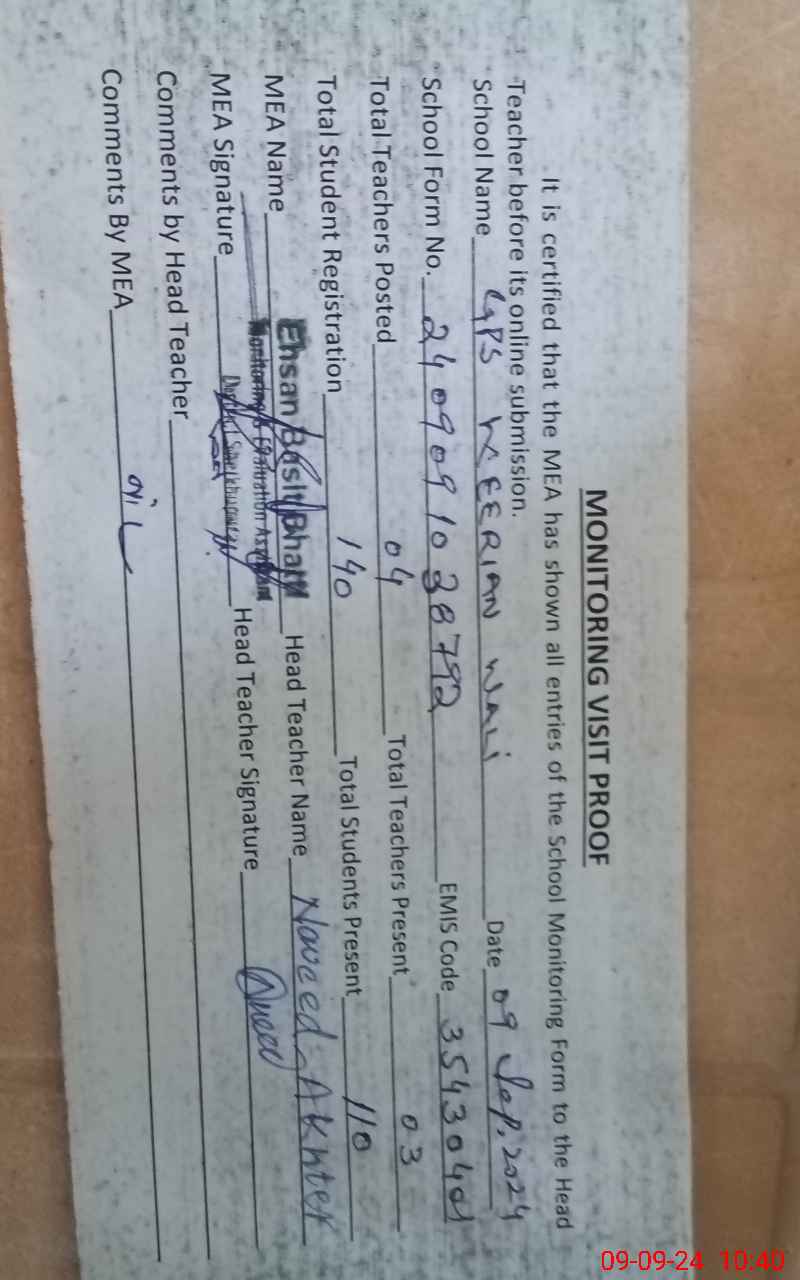 MONITORING VISIT PROOF
It is certified that the MEA has shown all entries of the School Monitoring Form to the Head
Teacher before its online submission.
School Name GPS WEERIAN WALi Date 09 Sep, 2024
School Form No. 24090910 38792 EMIS Code 35430401
Total Teachers Posted 04 Total Teachers Present 03
Total Student Registration 140 Total Students Present 110
MEA Name Ehsan Basit Bhatti Head Teacher Name Naveed Akhter
Monitoring & Evaluation Assistant
MEA Signature Head Teacher Signature
Comments by Head Teacher
Comments By MEA NiL
09-09-24 10:40